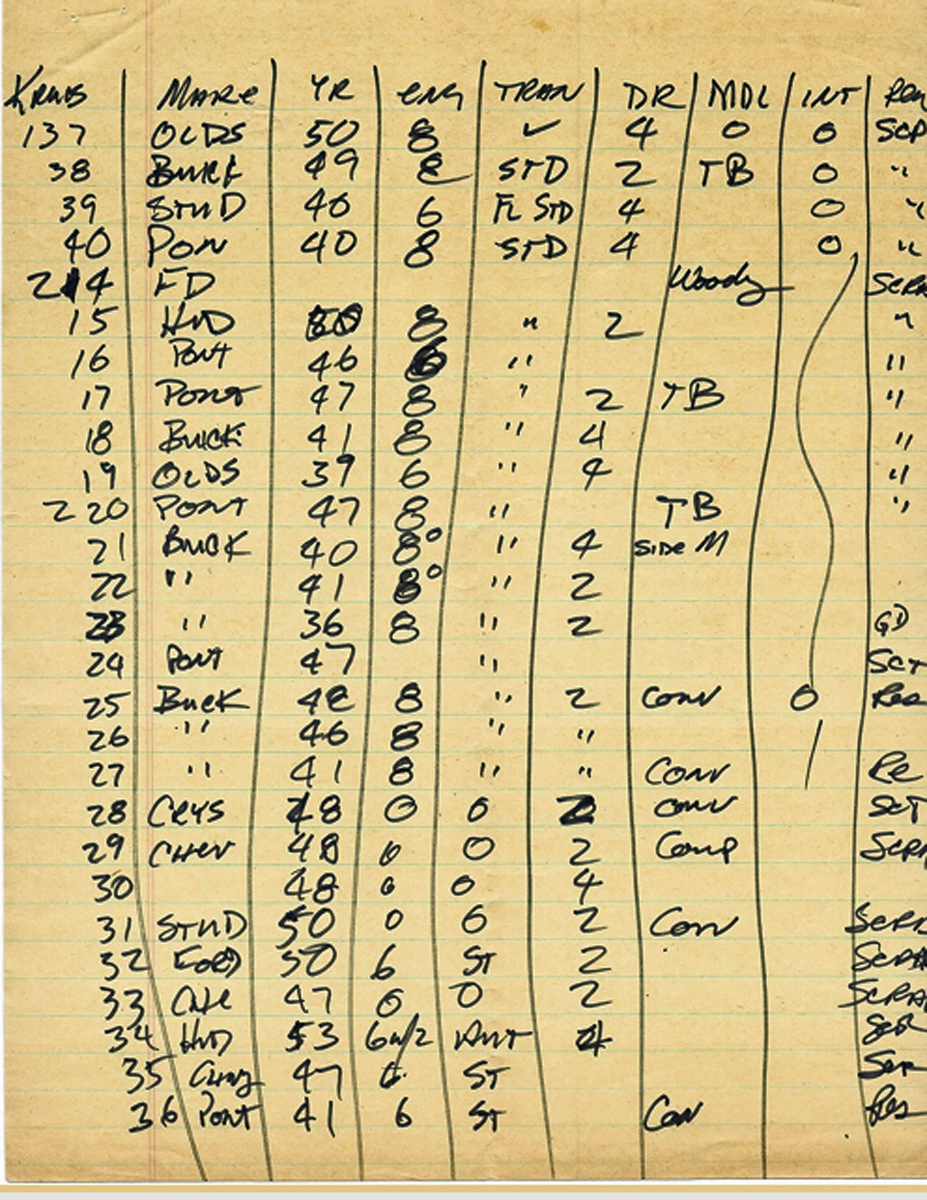 MAKE YR ENG TRAN DR MDL INT
137 OLDS 50 8 ✓ 4 0 0 SCR
38 BUICK 49 8 STD 2 TB 0 "
39 STUD 40 6 FL STD 4 0 "
40 PON 40 8 STD 4 0 "
214 FD Woody SCRA
15 HUD 50 8 " 2 "
16 PONT 46 6 " "
17 PONT 47 8 " 2 TB "
18 BUICK 41 8 " 4 "
19 OLDS 39 6 " 4 "
220 PONT 47 8 " TB "
21 BUICK 40 8° " 4 SIDE M
22 " 41 8° " 2
23 " 36 8 " 2 GD
24 PONT 47 " SCT
25 Buick 8 " 2 CONV 0 Res
26 " 46 8 " "
27 " 41 8 " " CONV Re
28 CRYS 48 0 0 2 CONV SCT
29 CHEV 48 0 0 2 Coup SCRA
30 48 0 0 4
31 STUD 50 0 0 2 Conv SCRA
32 FORD 50 6 ST 2 SCRA
33 47 0 0 2 SCRA
34 HUD 53 6W/2 AUT 4 SCR
35 47 6 ST
36 PONT 41 6 ST Con Res